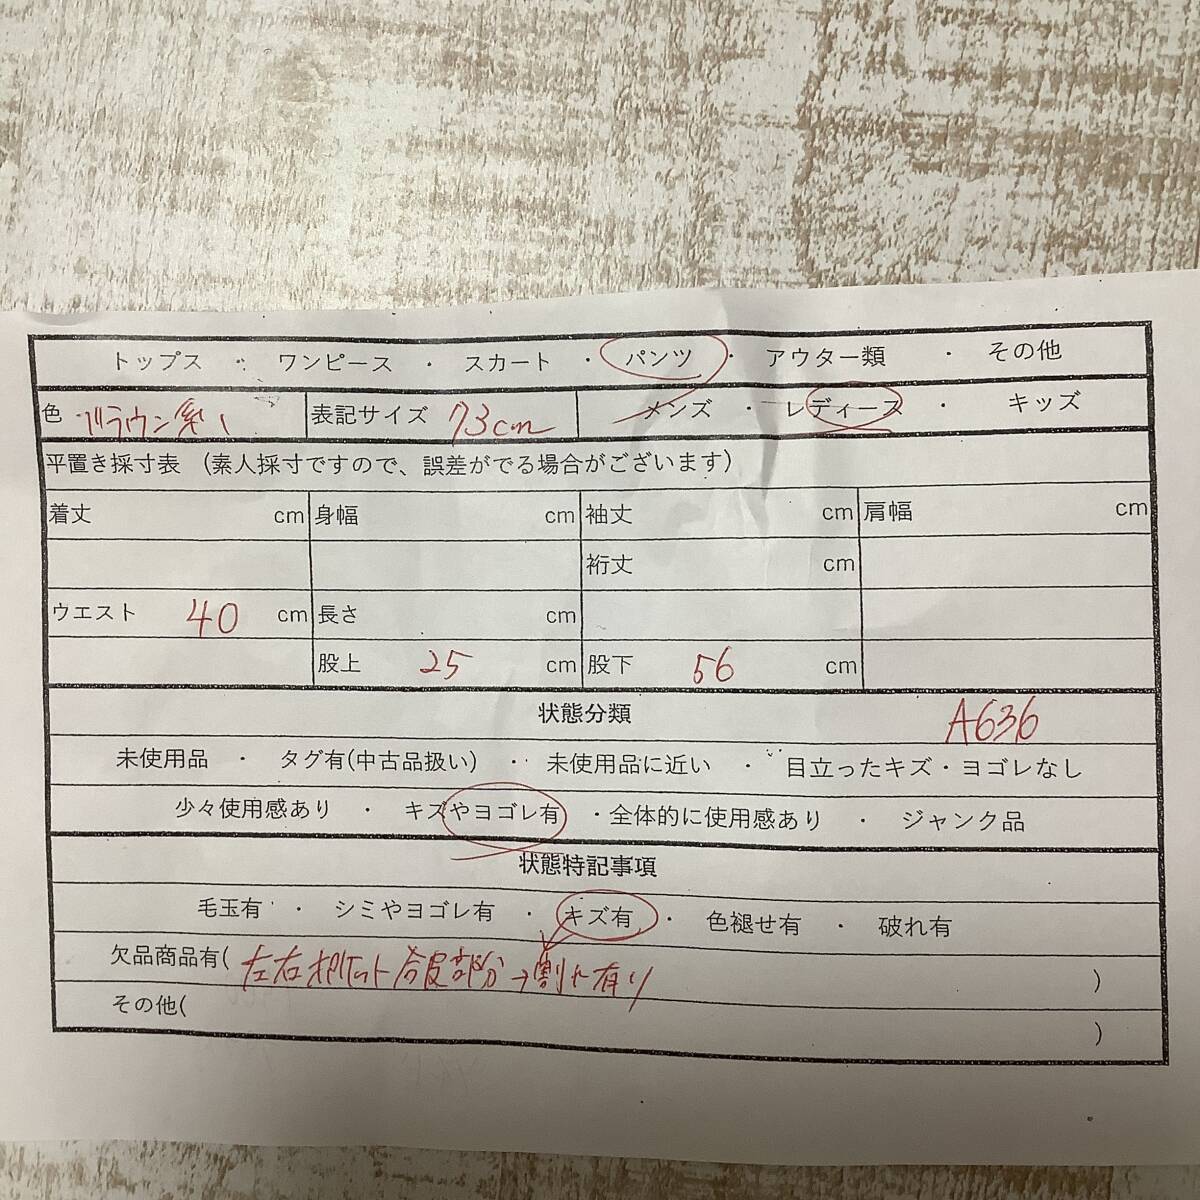 トップス ・ ワンピース ・ スカート ・ パンツ ・ アウター類 ・ その他
色 ブラウン系 表記サイズ 73cm メンズ ・ レディース ・ キッズ
平置き採寸表 (素人採寸ですので、誤差がでる場合がございます)
着丈 cm 身幅 cm 袖丈 cm 肩幅 cm
裄丈 cm
ウエスト 40 cm 長さ cm
股上 25 cm 股下 56 cm
状態分類 A636
未使用品 ・ タグ有(中古品扱い) ・ 未使用品に近い ・ 目立ったキズ・ヨゴレなし
少々使用感あり ・ キズやヨゴレ有 ・全体的に使用感あり ・ ジャンク品
状態特記事項
毛玉有 ・ シミやヨゴレ有 ・ キズ有 ・ 色褪せ有 ・ 破れ有
欠品商品有( 左右ポケット合皮部分→割れ有り )
その他( )